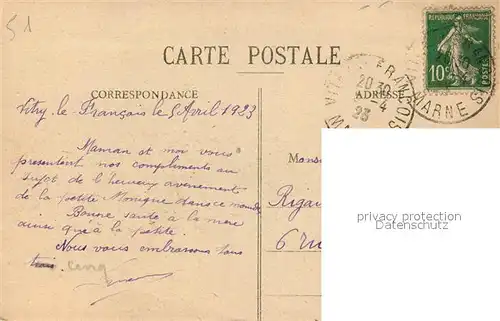 51
CARTE POSTALE
REPUBLIQUE FRANÇAISE
10c
CORRESPONDANCE
ADRESSE
FRANCOIS
MARNE
20 30
-4
23
Vitry le Français le 5 Avril 1923
Maman et moi vous
présentent nos compliments au
sujet de l'heureux avenement
de la petite Monique dans ce monde
Bonne santé à la mère
ainsi qu'à la petite.
Nous vous embrassons tous
cinq
Monsi
Rigau
6 ru
privacy protection
Datenschutz